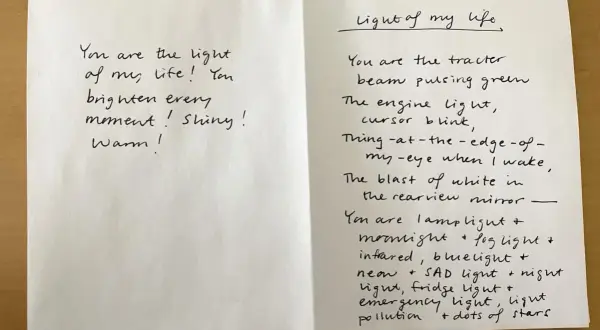 You are the light
of my life! You
brighten every
moment! Shiny!
Warm!
Light of my life,
You are the tracter
beam pulsing green
The engine light,
cursor blink,
Thing-at-the-edge-of-
my-eye when I wake,
The blast of white in
the rearview mirror —
You are lamplight +
moonlight + fog light +
infared, bluelight +
neon + SAD light + night
light, fridge light +
emergency light, light
pollution + dots of stars